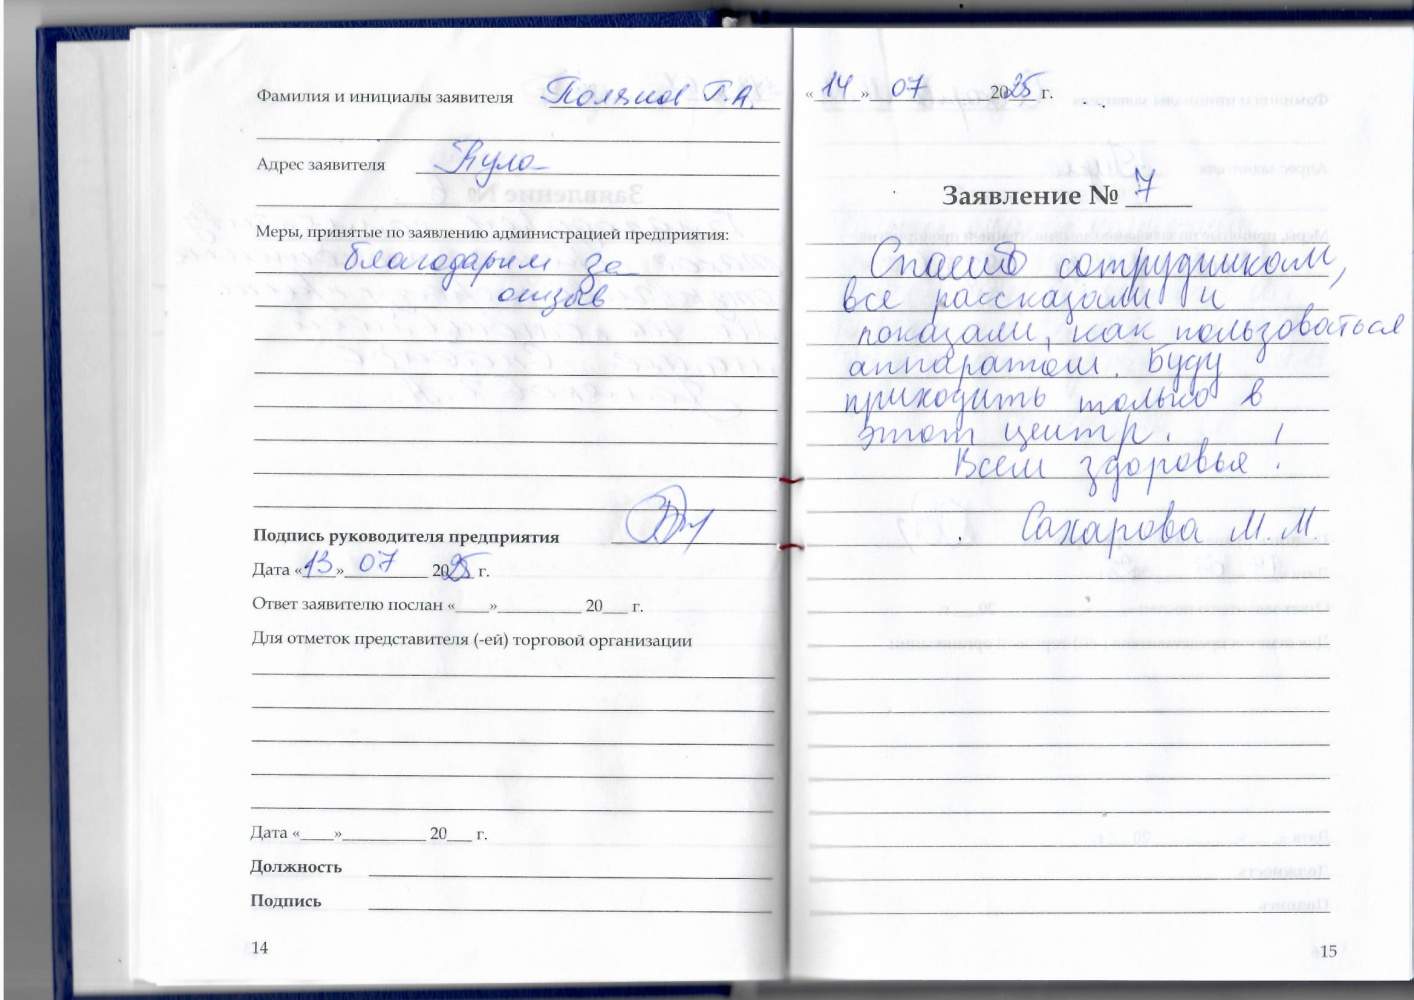 Фамилия и инициалы заявителя Поляков Г.А.
Адрес заявителя Тула
Меры, принятые по заявлению администрацией предприятия:
благодарим за
отзыв
Подпись руководителя предприятия
Дата «13» 07 2025 г.
Ответ заявителю послан «____»__________ 20___ г.
Для отметок представителя (-ей) торговой организации
Дата «____»__________ 20___ г.
Должность
Подпись
14
«14» 07 2025 г.
Заявление № 7
Спасибо сотрудникам,
все рассказали и
показали, как пользоваться
аппаратом. Буду
приходить только в
этот центр.
Всем здоровья!
Сахарова М.М.
15